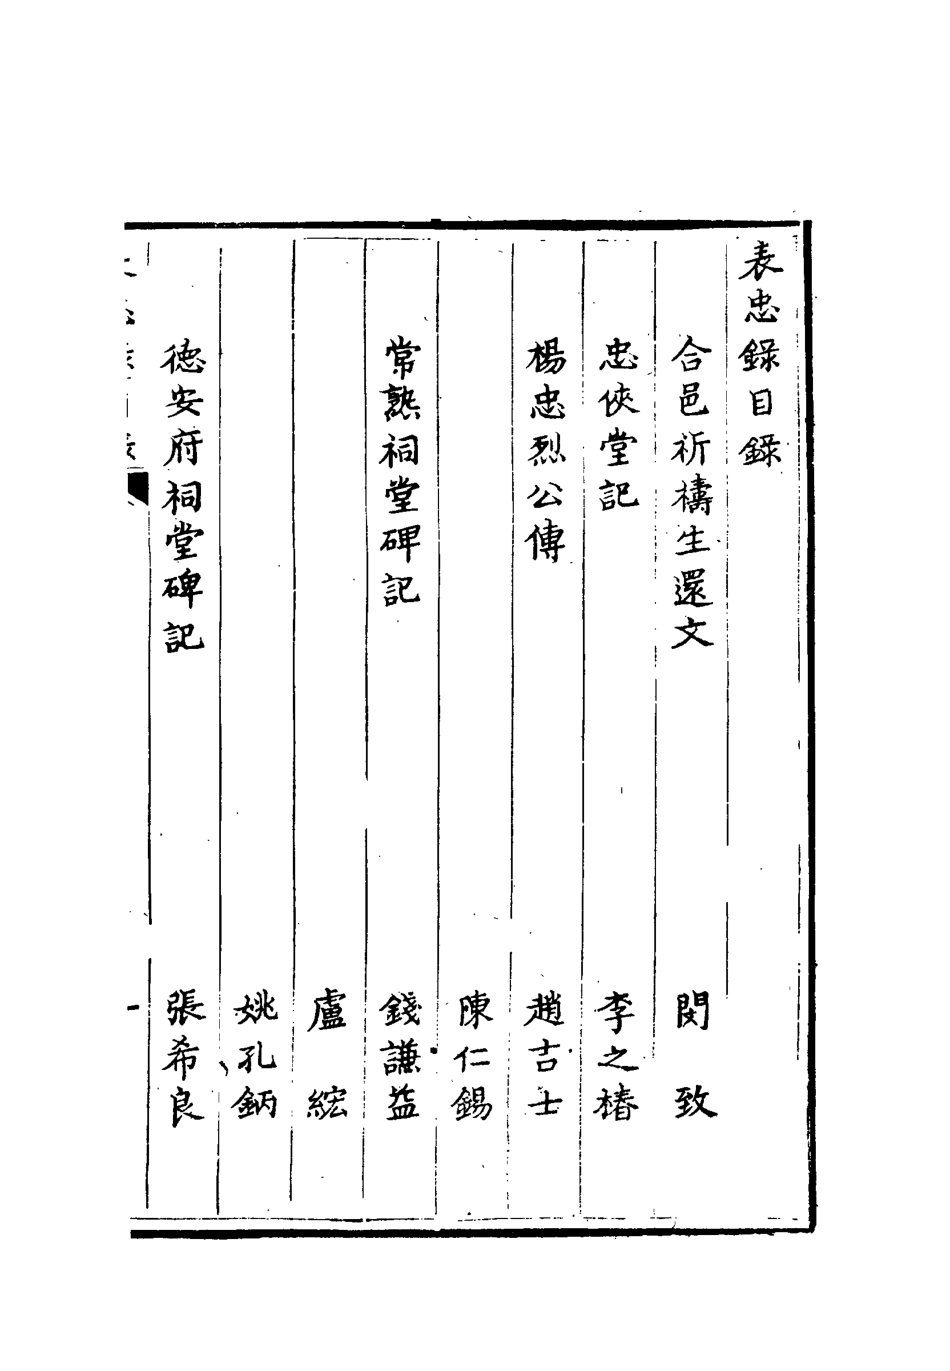 表忠錄目錄
合邑祈禱生還文　閔　致
忠俠堂記　李之椿
楊忠烈公傳　趙吉士
陳仁錫
常熟祠堂碑記　錢謙益
盧　綋
姚孔鈵
德安府祠堂碑記　張希良